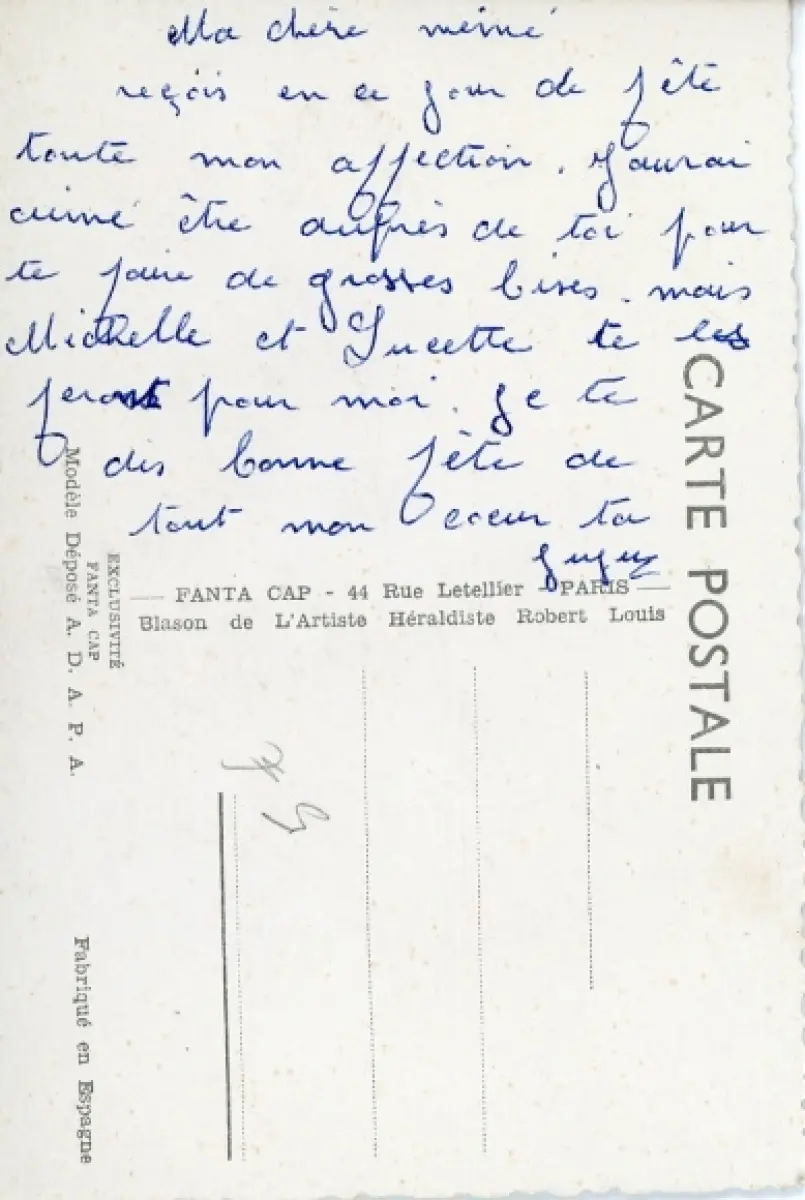 Ma chère mémé
reçois en ce jour de fête
toute mon affection. J'aurai
aimé être auprès de toi pour
te faire de grosses bises. mais
Michelle et Lucette te les
feront pour moi. Je te
dis bonne fête de
tout mon coeur ta
FANTA CAP - 44 Rue Letellier - PARIS
Blason de L'Artiste Héraldiste Robert Louis
CARTE POSTALE
EXCLUSIVITÉ
FANTA CAP
Modèle Déposé A. D. A. P. A.
Fabriqué en Espagne